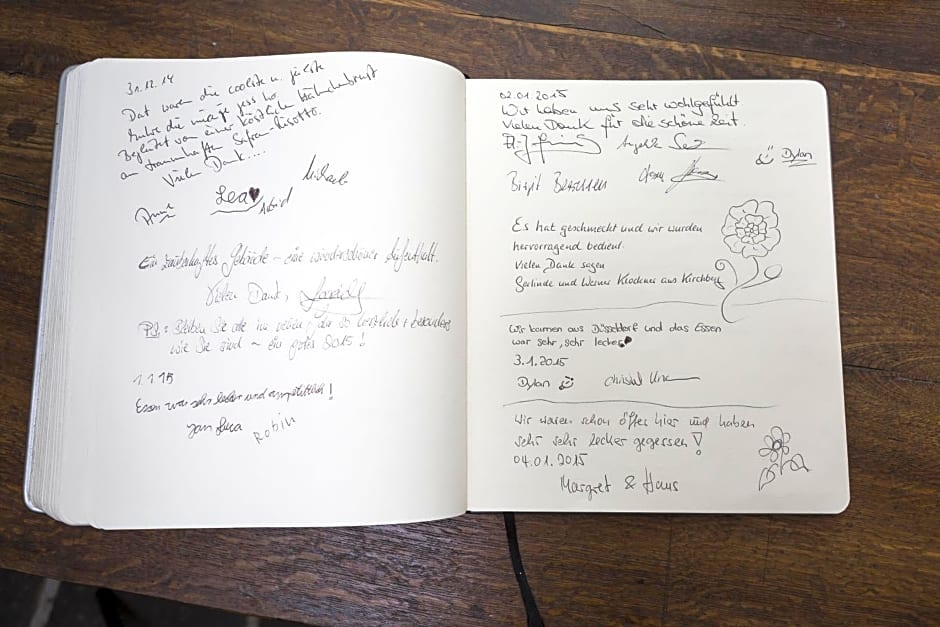 31.12.14
Dat waren die coolste u.
Begleitet von einer köstlichen Hähnchenbrust
an traumhaften Safran-Risotto.
Vielen Dank....
Michael
Lea
Astrid
Anne
Ein zauberhaftes Gebäude - eine wunderschöner Aufenthalt.
Vielen Dank,
PS: Bleiben Sie alle im neuen Jahr so herzlich + besonders
wie Sie sind - ein gutes 2015!
1.1.15
Essen war sehr lecker und
Jan Luca Robin
02.01.2015
Wir haben uns sehr wohlgefühlt.
Vielen Dank für die schöne Zeit.
Dylan
Birgit
Es hat geschmeckt und wir wurden
hervorragend bedient.
Vielen Dank sagen
Gerlinde und Werner Klockner aus Kirchberg
Wir kamen aus Düsseldorf und das Essen
war sehr, sehr lecker
3.1.2015
Dylan Christel
Wir waren schon öfter hier und haben
sehr sehr lecker gegessen!
04.01.2015
Margret & Hans